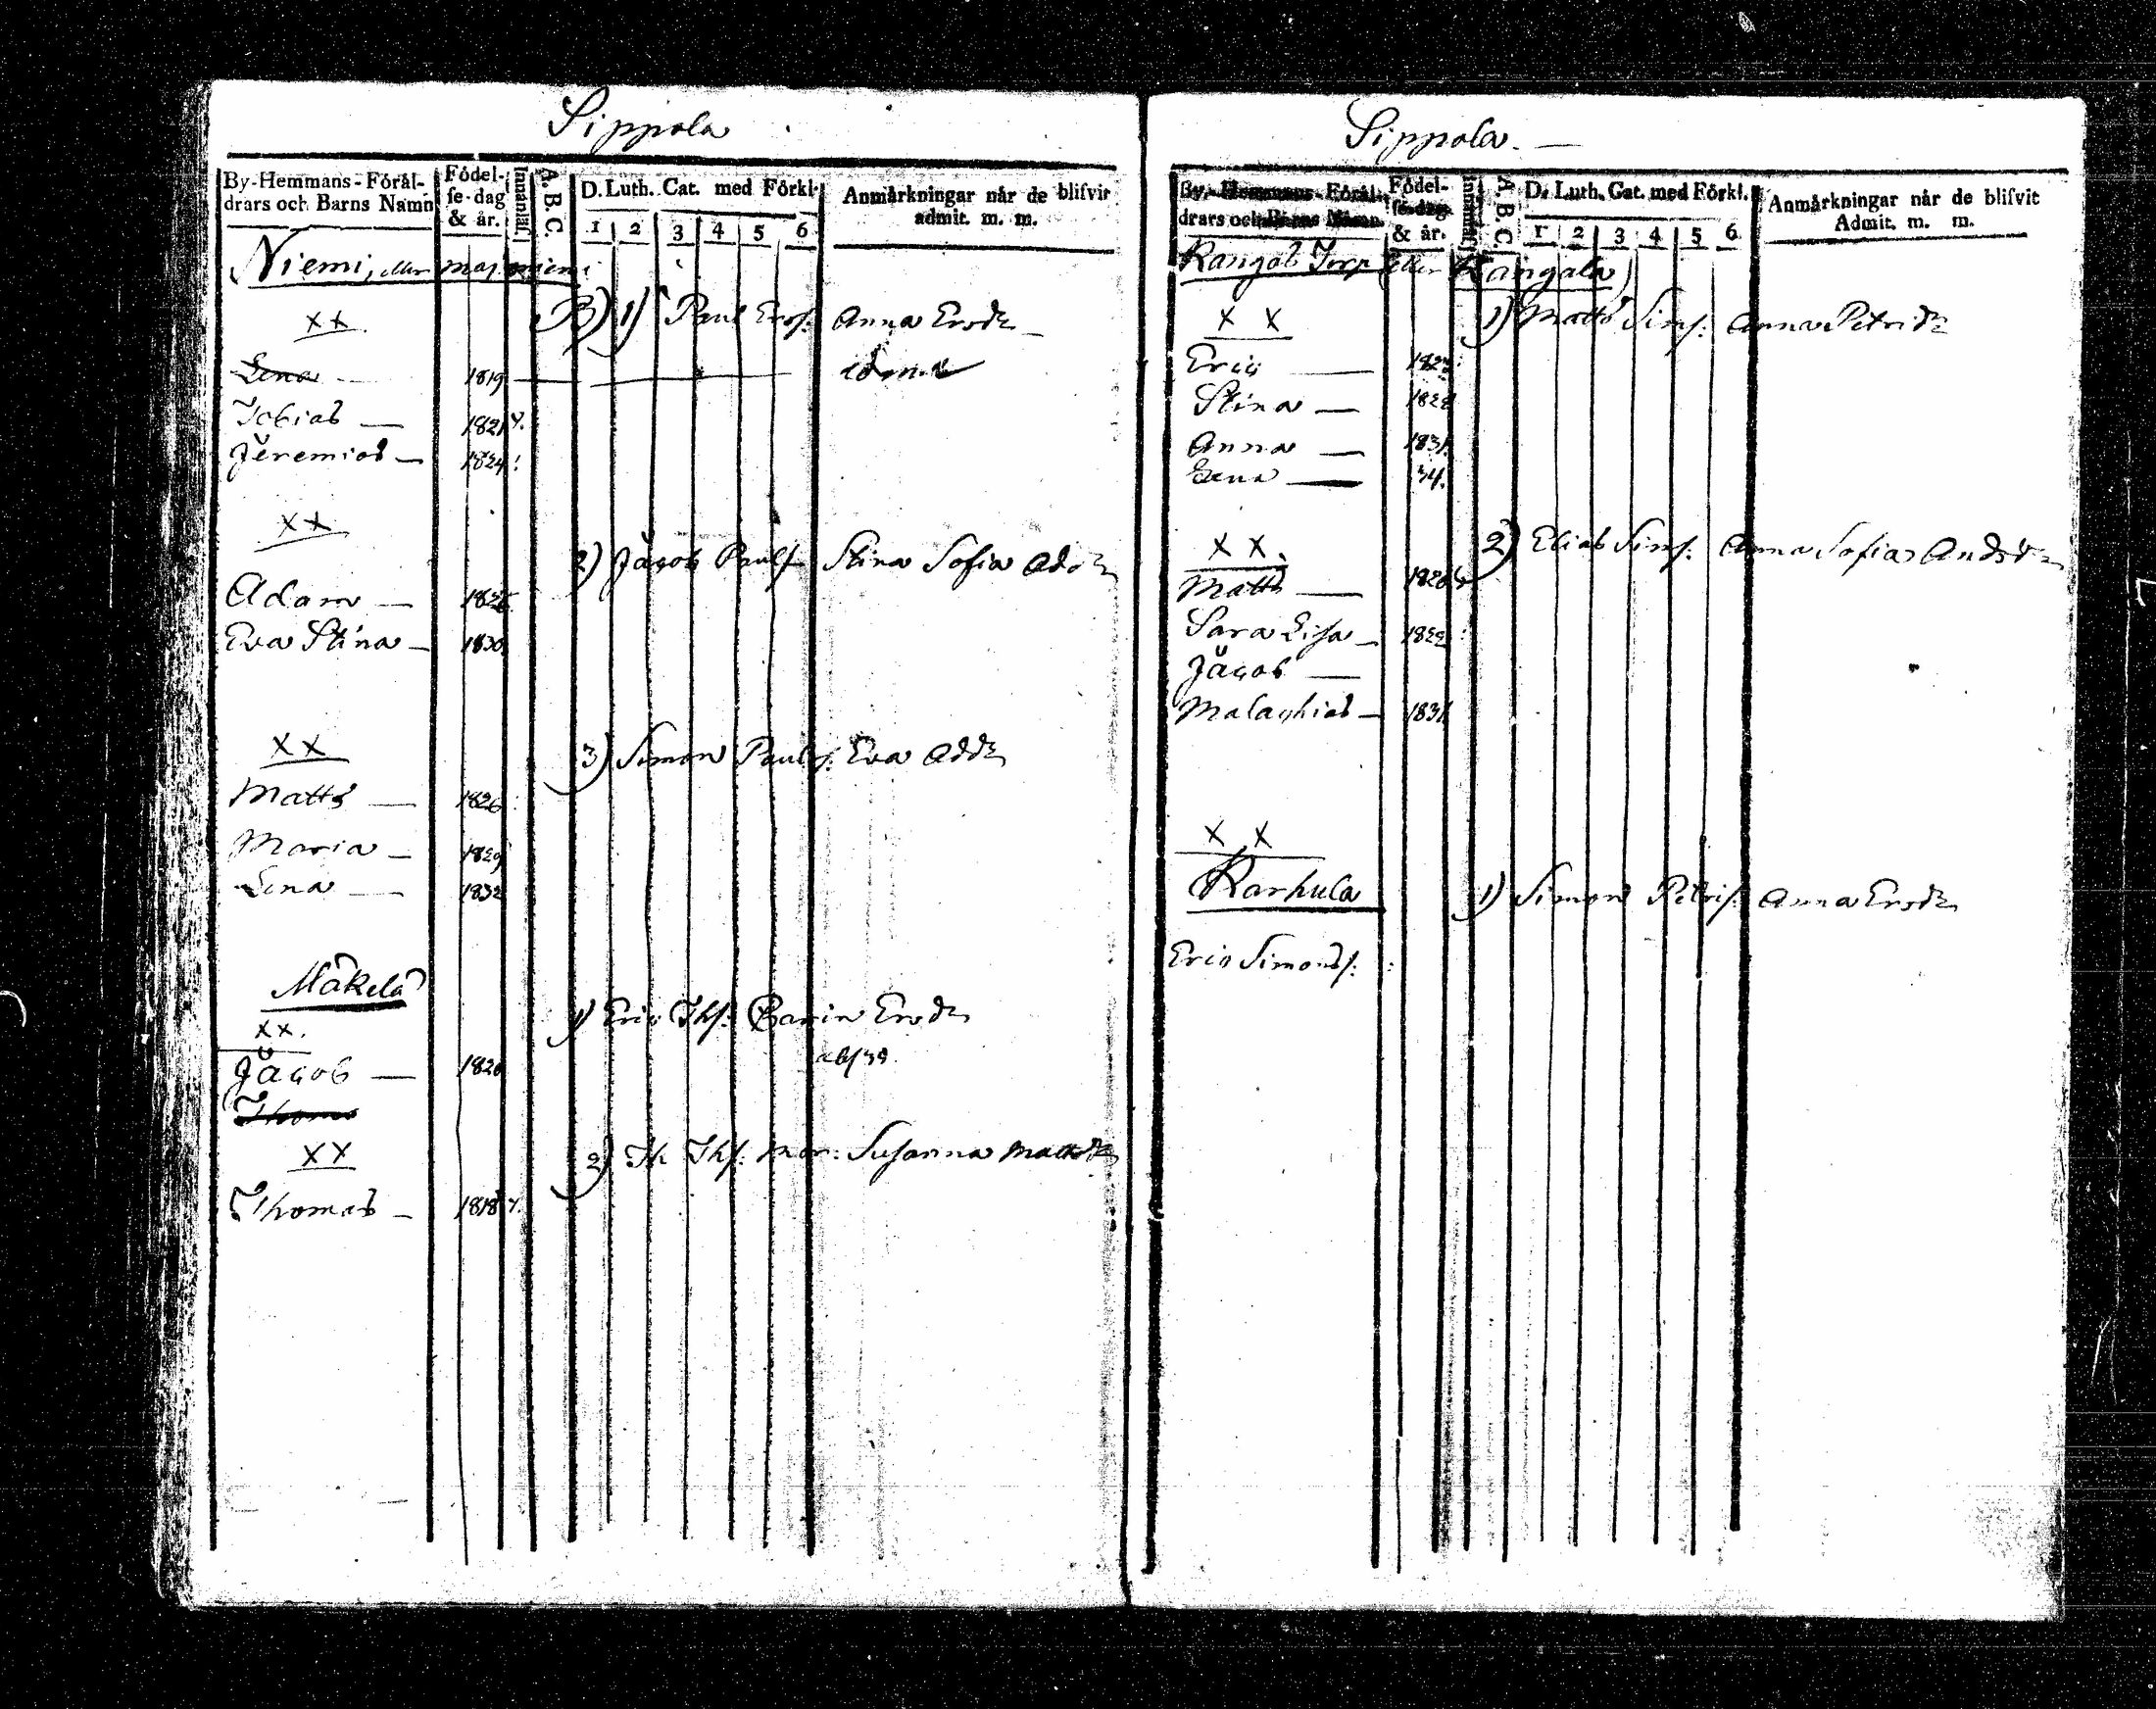 Sippola
By-Hemmans-Föräl-
drars och Barns Namn
Födel-
ſe-dag
& år.
Innanläſ.
A. B C.
D. Luth. Cat. med Förkl.
1 2 3 4 5 6
Anmärkningar när de blifvit
admit. m. m.
Niemi, eller
XX
B) 1) Paul Ersſ: Anna Ersdr
Lena 1819
Tobias — 1821
Jeremias — 1824
XX
2) Jacob Paulſ Stina Sofia Adsdr
Adam —
Eva Stina — 1830
XX
3) Simon Paulsſ: Eva Addr
Matts — 1826
Maria — 1829
Lena — 1832
Mäkelä
XX.
1) Eric Thſ: Carin Ersdr
Jacob — 1826
Thomas
XX
2) Th Thſ: Mar: Suſanna Mattsdr
Thomas — 1818
Sippola. —
By-Hemmans-Föräl-
drars och Barns Namn.
Födel-
ſe-dag
& år.
Innanläſ.
A B C
D. Luth. Cat. med Förkl.
1 2 3 4 5 6
Anmärkningar när de blifvit
Admit. m. m.
Kangas Torp (eller Kangala)
X X
1) Matts Simſ: Anna Petridr
Eric —
Stina — 1828
Anna — 1831
Lena — 34.
X X.
2) Elias Simſ: Anna Sofia Andsdr
Matts —
Sara Liſa — 1829
Jacob —
Malachias — 1831
X X
Karhula
1) Simon Petriſ: Anna Ersdr
Eric Simonsſ: